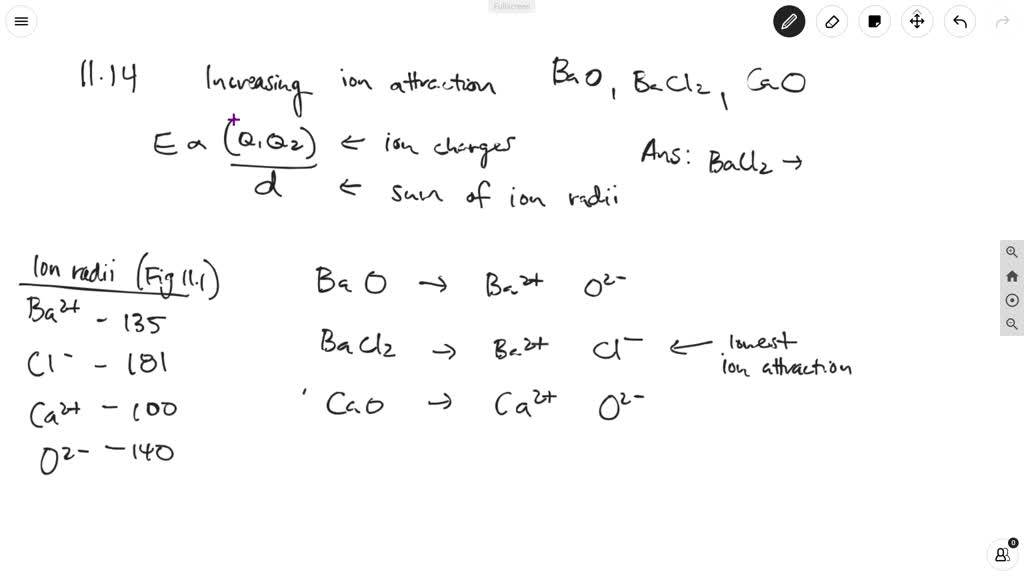 Fullscreen
11.14 Increasing ion attraction BaO, BaCl2, CaO
E ∝ (Q1Q2) ← ion charges
d ← sum of ion radii
Ans: BaCl2 →
Ion radii (Fig 11.1)
Ba2+ - 135
Cl- - 181
Ca2+ - 100
O2- - 140
BaO → Ba2+ O2-
BaCl2 → Ba2+ Cl- ← lowest
ion attraction
CaO → Ca2+ O2-
0